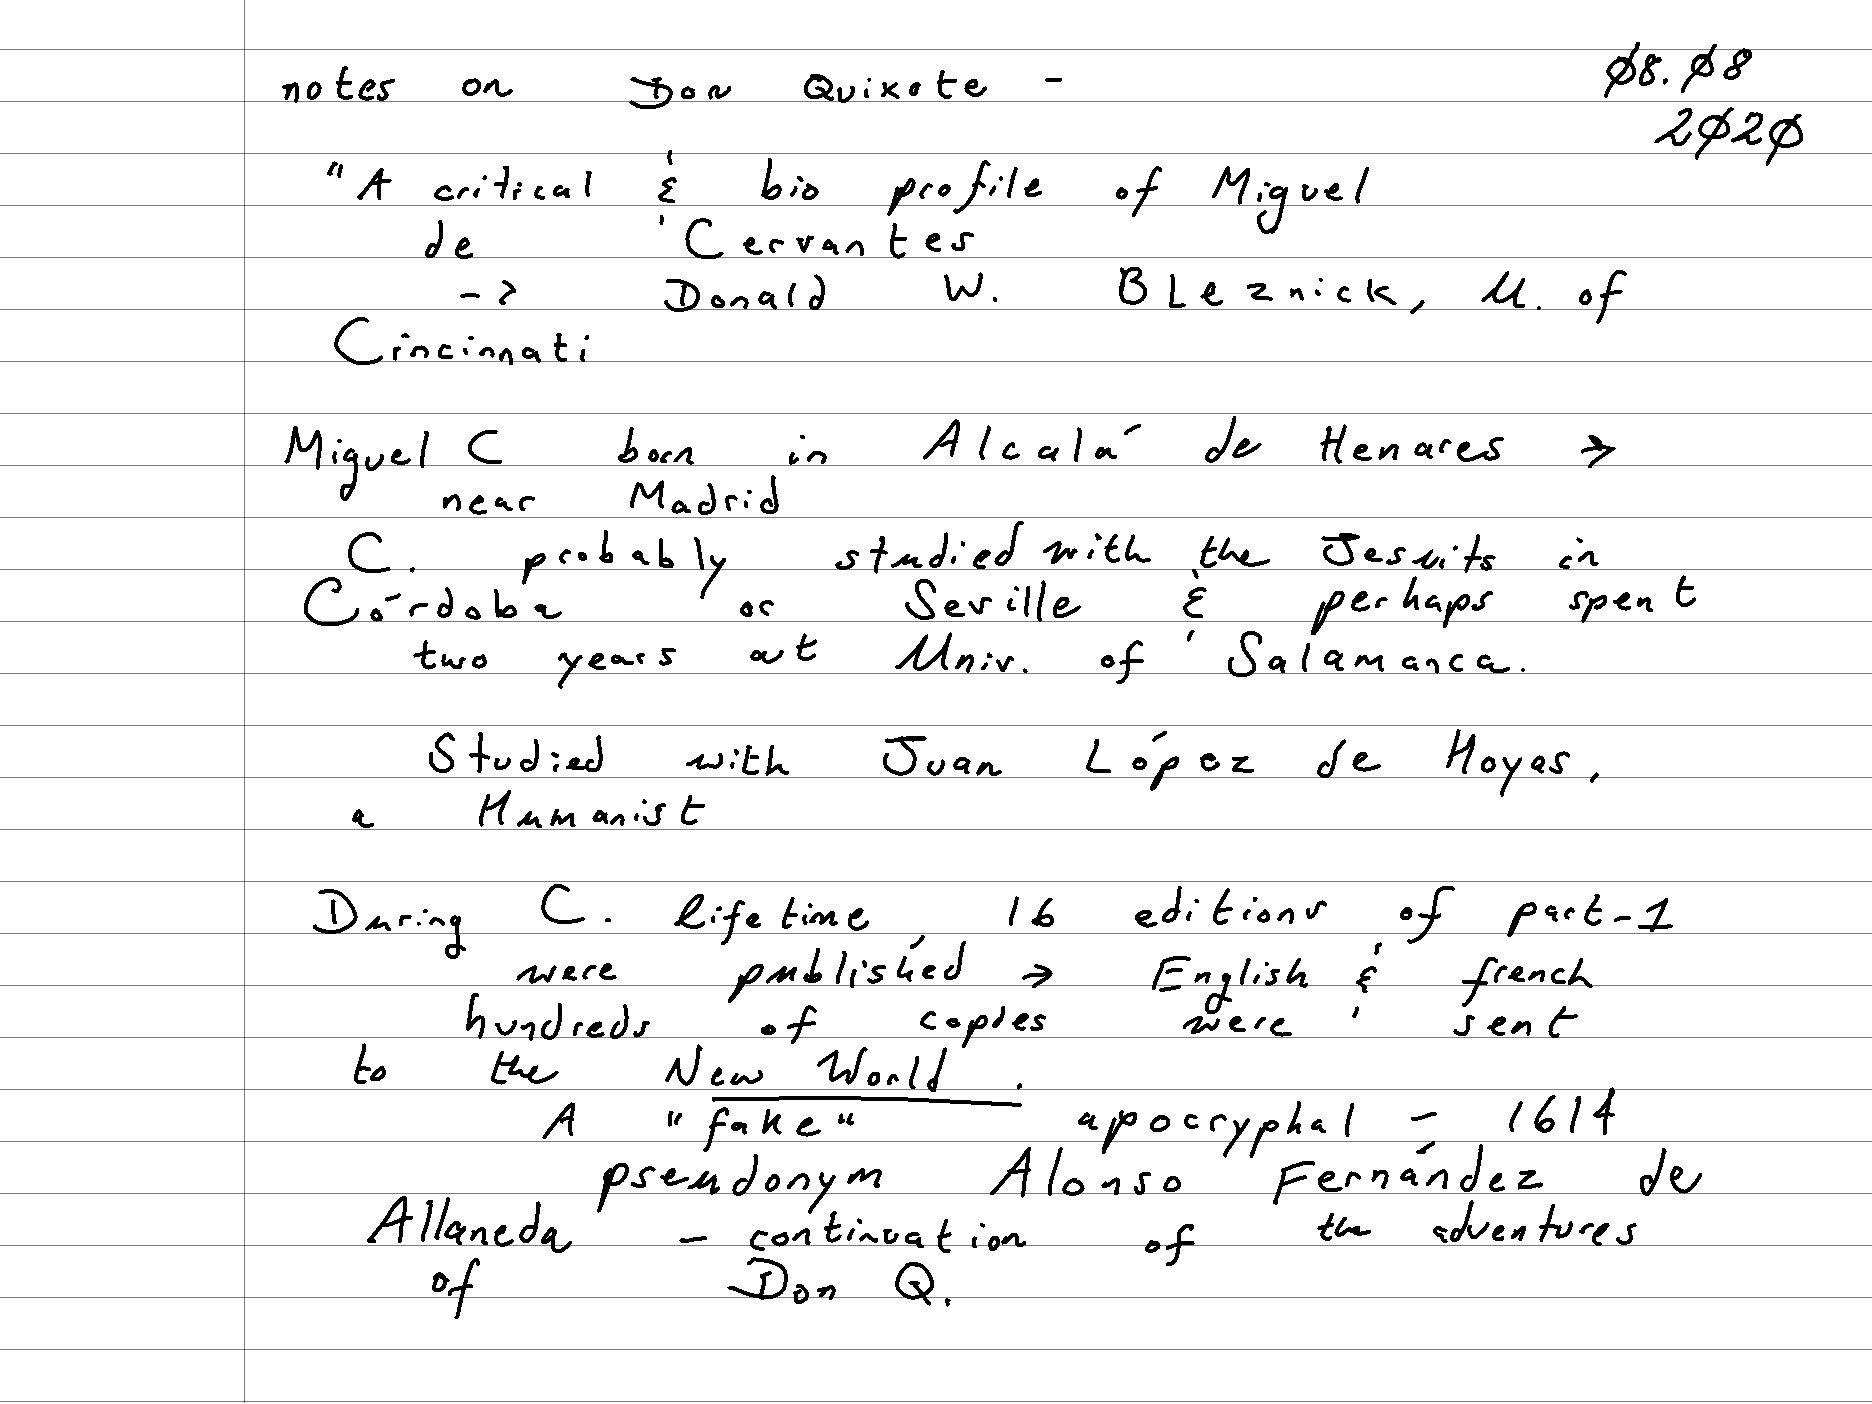 notes on Don Quixote -
08.08
2020
"A critical & bio profile of Miguel
de Cervantes
-> Donald W. BLeznick, U. of
Cincinnati
Miguel C born in Alcalá de Henares →
near Madrid
C. probably studied with the Jesuits in
Córdoba or Seville & perhaps spent
two years at Univ. of Salamanca.
Studied with Juan López de Hoyas,
a Humanist
During C. lifetime, 16 editions of part-1
were published → English & french
hundreds of copies were sent
to the New World.
A "fake" apocryphal - 1614
pseudonym Alonso Fernández de
Allaneda - continuation of the adventures
of Don Q.